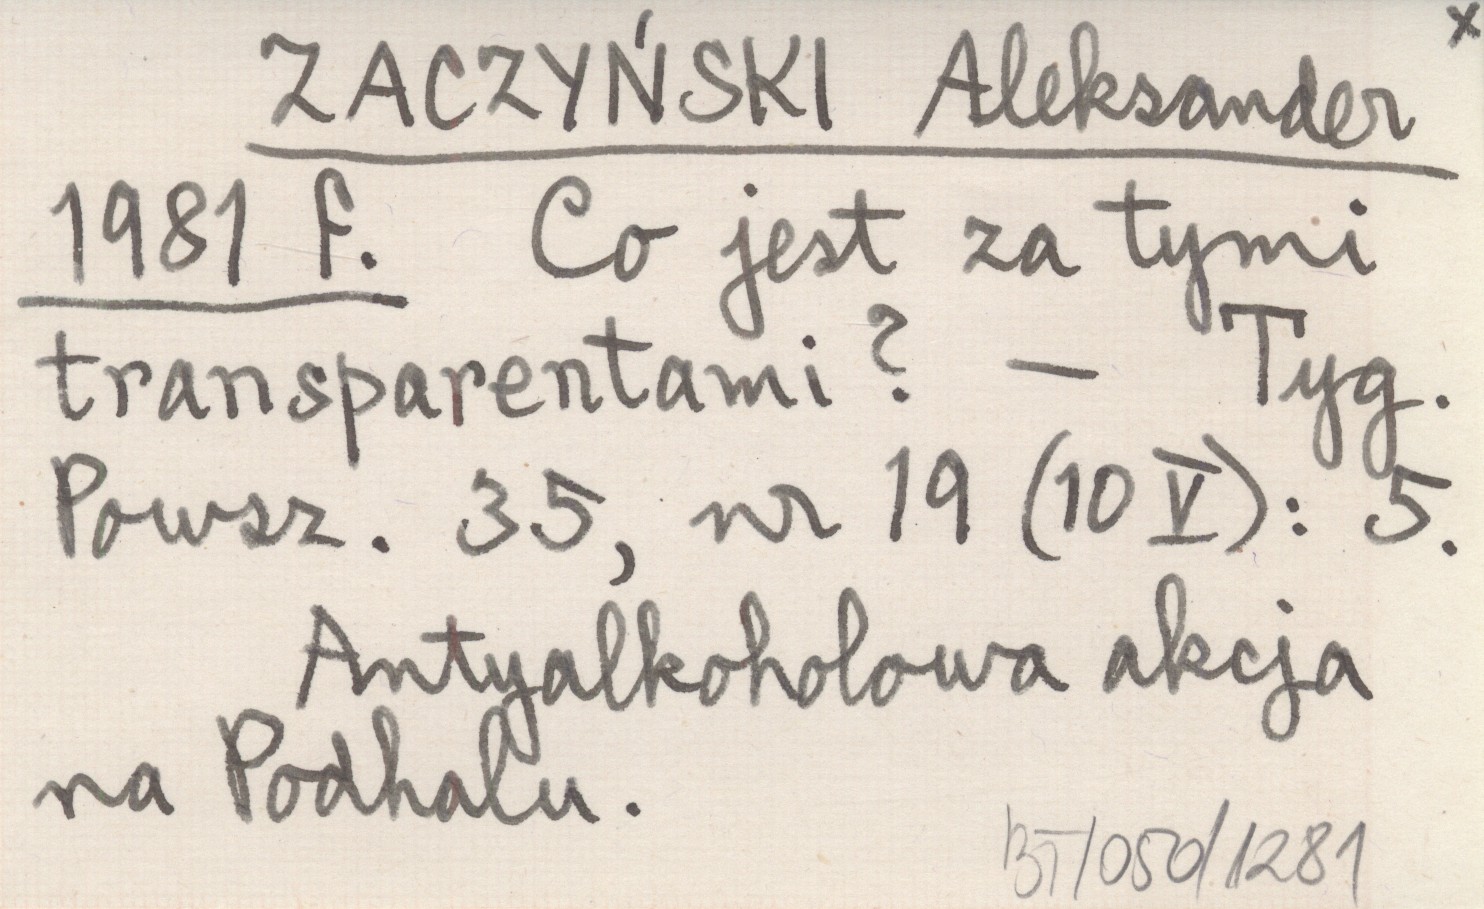 x
ZACZYŃSKI Aleksander
1981 f. Co jest za tymi
transparentami? – Tyg.
Powsz. 35, nr 19 (10 V): 5.
Antyalkoholowa akcja
na Podhalu.
BT/050/1281